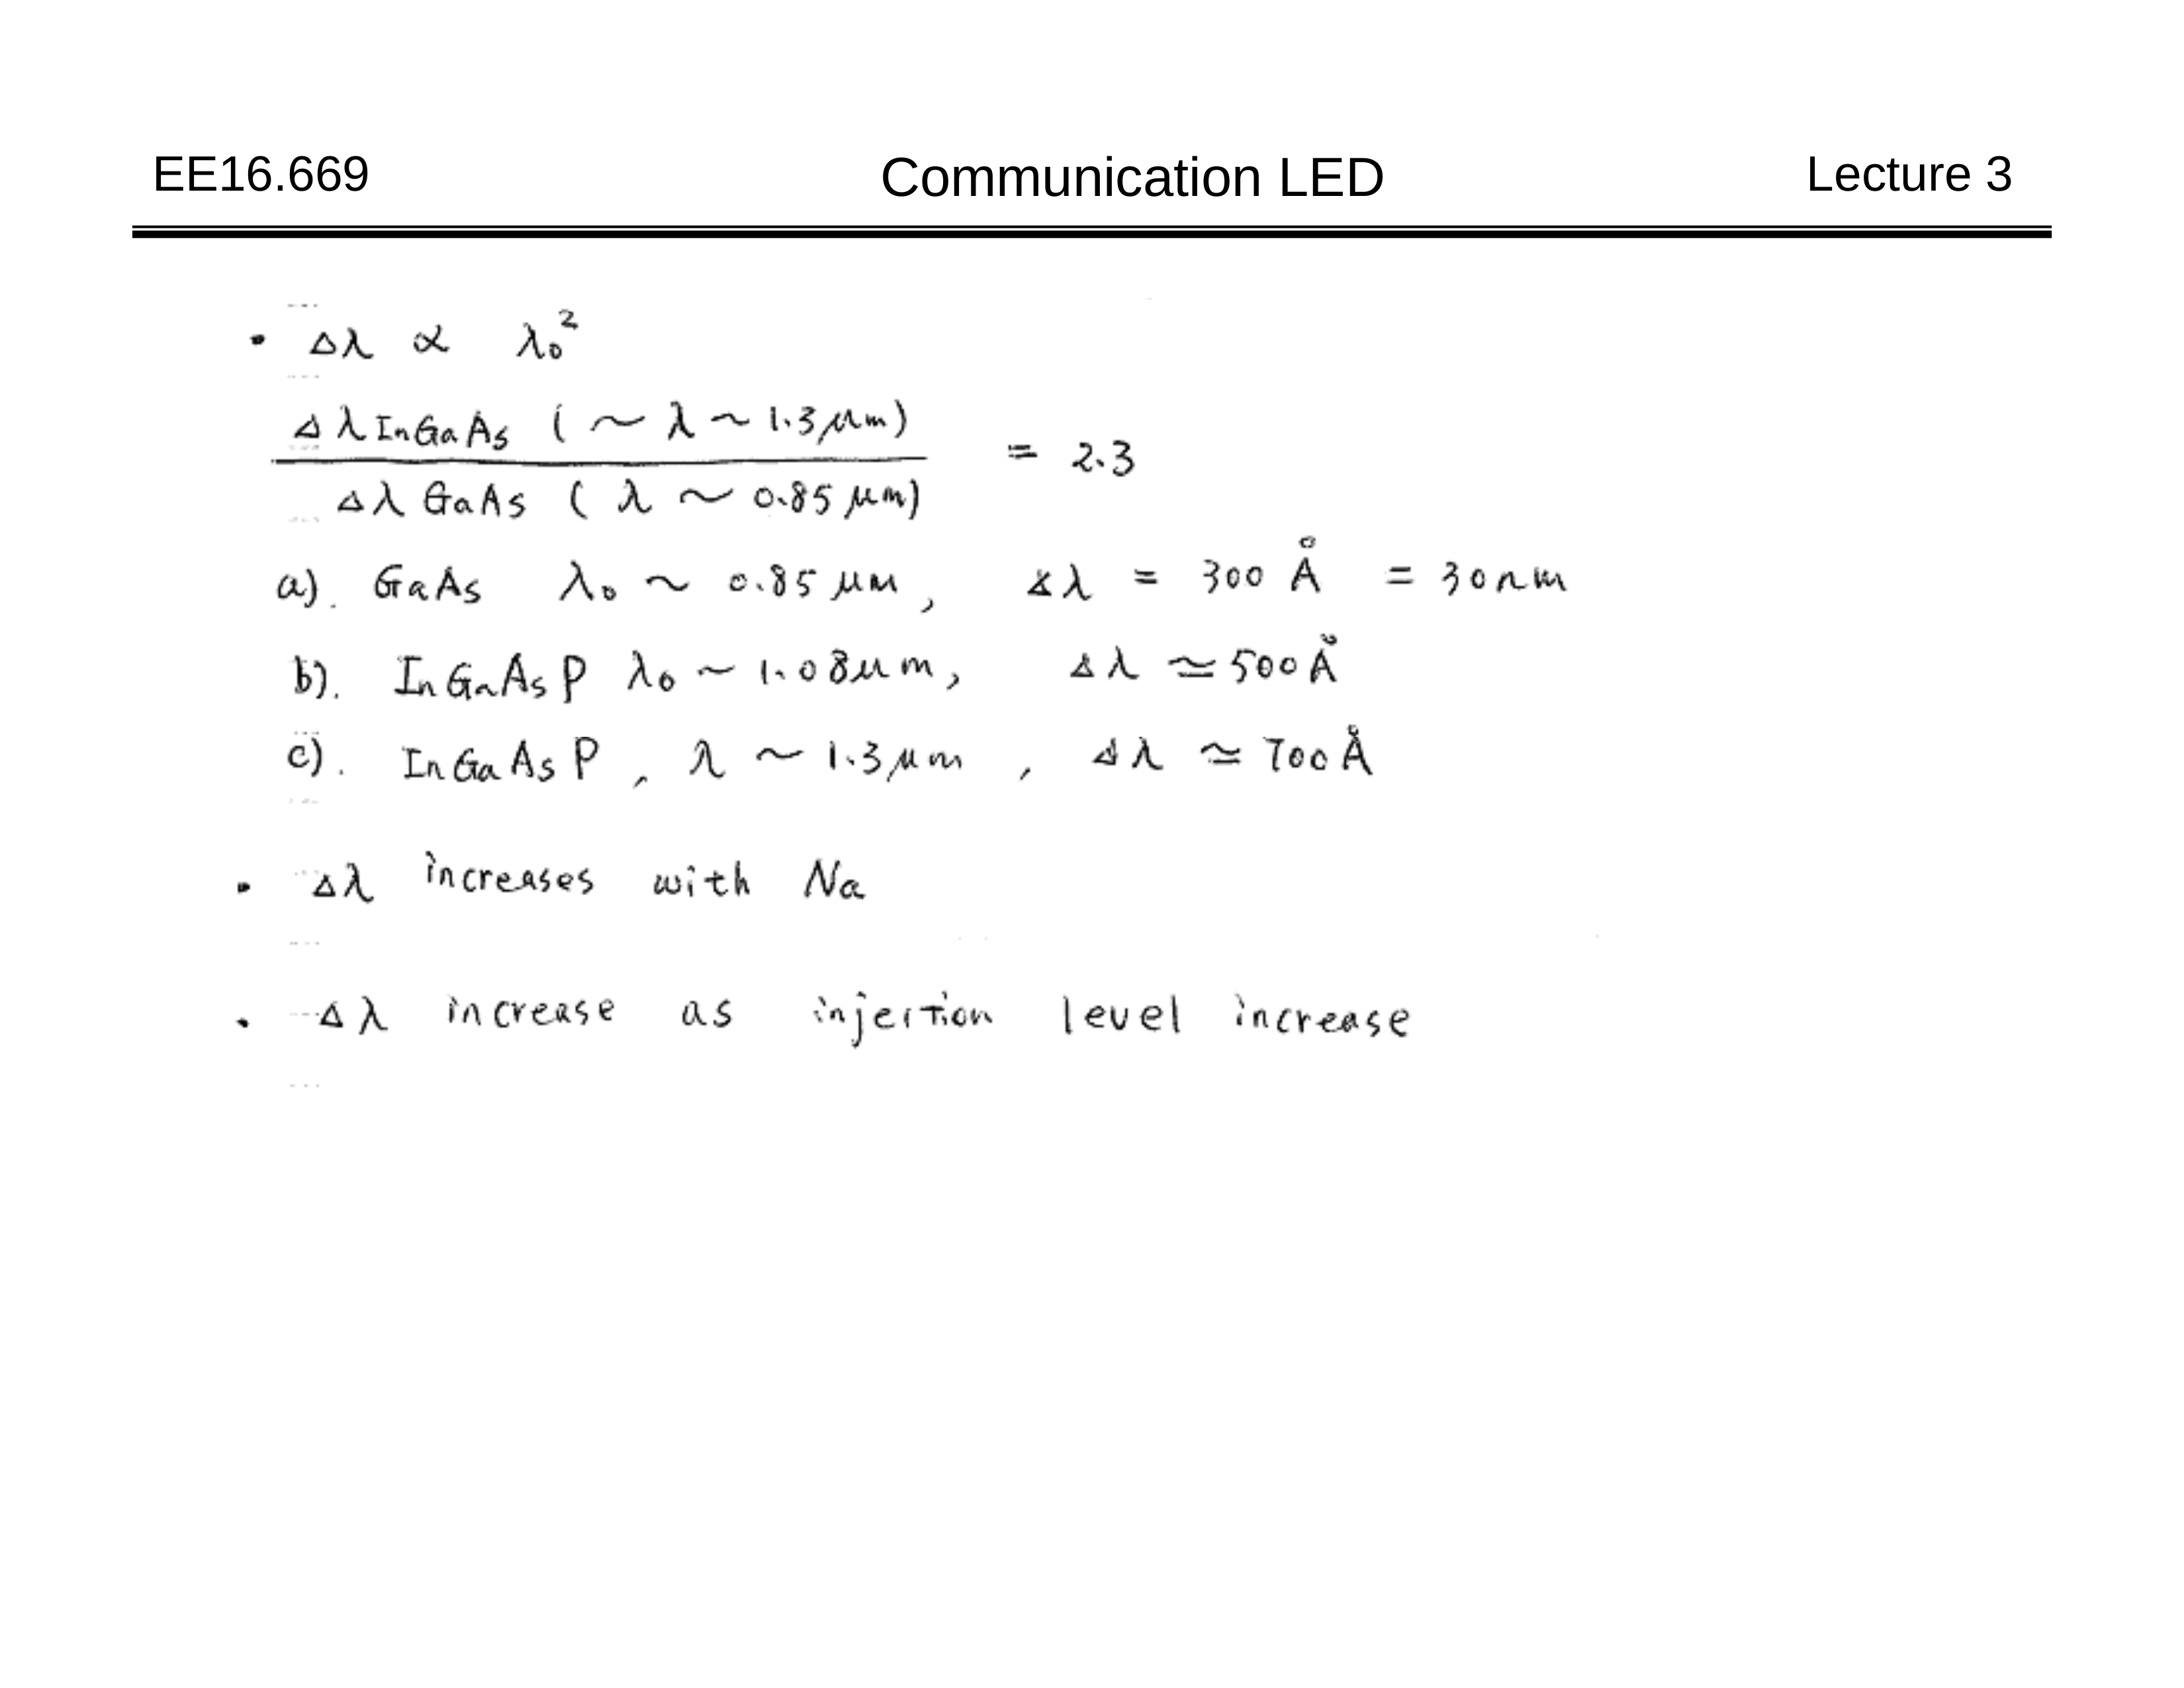 EE16.669 Communication LED Lecture 3
• Δλ ∝ λ₀²
Δλ InGaAs (~ λ ~ 1.3 μm)
= 2.3
Δλ GaAs ( λ ~ 0.85 μm)
a). GaAs λ₀ ~ 0.85 μm, Δλ = 300 Å = 30nm
b). InGaAsP λ₀ ~ 1.08μm, Δλ ≃ 500Å
c). InGaAsP, λ ~ 1.3μm, Δλ ≃ 700Å
• Δλ increases with Na
• Δλ increase as injection level increase